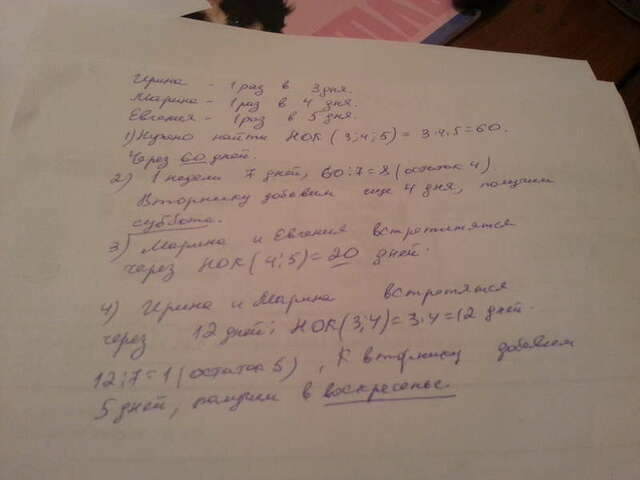 Ирина - 1 раз в 3 дня.
Марина - 1 раз в 4 дня.
Евгения - 1 раз в 5 дня.
1) Нужно найти НОК (3;4;5) = 3·4·5=60.
Через 60 дней.
2) 1 неделя 7 дней, 60:7=8 (остаток 4).
Вторнику добавим еще 4 дня, получим
суббота.
3) Марина и Евгения встретятся
через НОК(4;5)=20 дней.
4) Ирина и Марина встретятся
через 12 дней; НОК(3;4)=3·4=12 дней.
12:7=1 (остаток 5), К вторнику добавим
5 дней, получим в воскресенье.